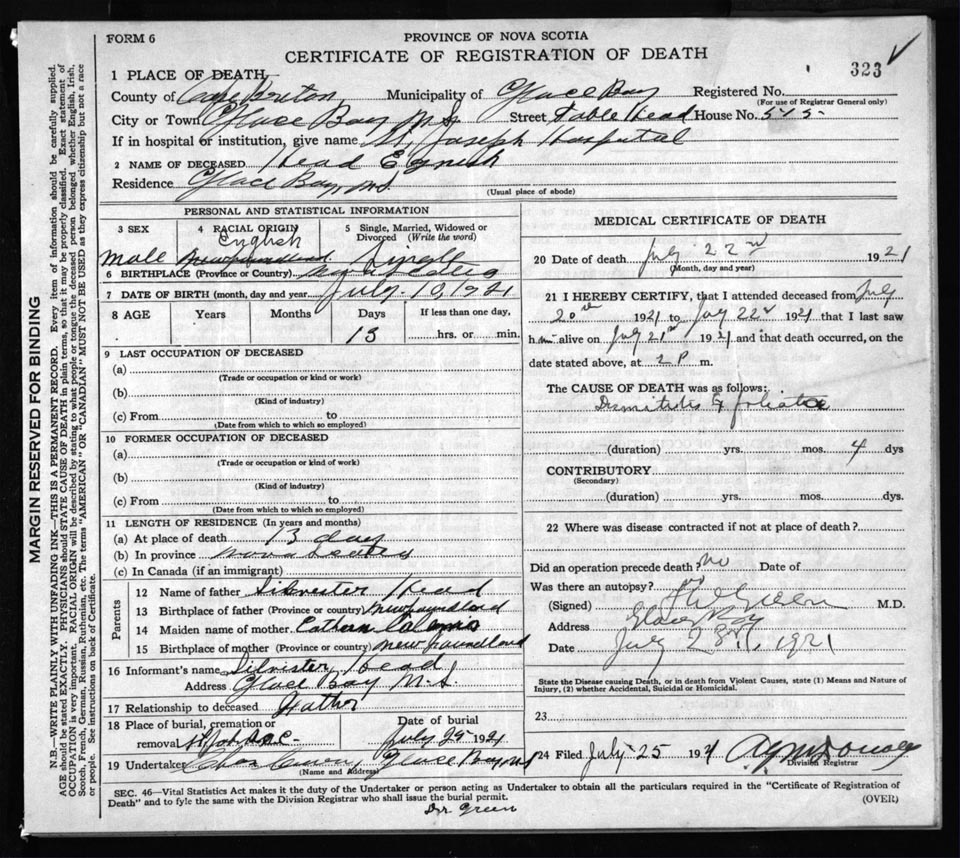 FORM 6
PROVINCE OF NOVA SCOTIA
CERTIFICATE OF REGISTRATION OF DEATH
323
1 PLACE OF DEATH
County of Cape Breton Municipality of Glace Bay Registered No.
(For use of Registrar General only)
City or Town Glace Bay N.S. Street Table Head House No. 545
If in hospital or institution, give name St. Joseph Hospital
2 NAME OF DECEASED Head
Residence Glace Bay N.S.
(Usual place of abode)
PERSONAL AND STATISTICAL INFORMATION
3 SEX
4 RACIAL ORIGIN
5 Single, Married, Widowed or Divorced (Write the word)
English
male Newfoundland Single
6 BIRTHPLACE (Province or Country) Nova Scotia
7 DATE OF BIRTH (month, day and year) July 10, 1921
8 AGE Years Months Days If less than one day,
13 hrs. or min.
9 LAST OCCUPATION OF DECEASED
(a)
(Trade or occupation or kind or work)
(b)
(Kind of industry)
(c) From to
(Date from which to which so employed)
10 FORMER OCCUPATION OF DECEASED
(a)
(Trade or occupation or kind or work)
(b)
(Kind of industry)
(c) From to
(Date from which to which so employed)
11 LENGTH OF RESIDENCE (In years and months)
(a) At place of death 13 days
(b) In province Nova Scotia
(c) In Canada (if an immigrant)
Parents
12 Name of father Silvester Head
13 Birthplace of father (Province or country) Newfoundland
14 Maiden name of mother
15 Birthplace of mother (Province or country) Newfoundland
16 Informant's name Silvister Head
Address Glace Bay N.S.
17 Relationship to deceased Father
18 Place of burial, cremation or removal
Date of burial
July 25 1921
19 Undertaker Glace Bay NS
(Name and Address)
MEDICAL CERTIFICATE OF DEATH
20 Date of death July 22nd 1921
(Month, day and year)
21 I HEREBY CERTIFY, that I attended deceased from July
20th 1921 to July 22d 1921 that I last saw
him alive on July 21st 1921 and that death occurred, on the
date stated above, at 2 P m.
The CAUSE OF DEATH was as follows:
(duration) yrs. mos. 4 dys
CONTRIBUTORY
(Secondary)
(duration) yrs. mos. dys.
22 Where was disease contracted if not at place of death?
Did an operation precede death? no Date of
Was there an autopsy?
(Signed) Green M.D.
Address Glace Bay
Date July 1921
State the Disease causing Death, or in death from Violent Causes, state (1) Means and Nature of
Injury, (2) whether Accidental, Suicidal or Homicidal.
23
24 Filed July 25 1921
Division Registrar
SEC. 46—Vital Statistics Act makes it the duty of the Undertaker or person acting as Undertaker to obtain all the particulars required in the "Certificate of Registration of
Death" and to fyle the same with the Division Registrar who shall issue the burial permit.
(OVER)
Dr Green
MARGIN RESERVED FOR BINDING
N.B.—WRITE PLAINLY WITH UNFADING INK—THIS IS A PERMANENT RECORD. Every item of information should be carefully supplied.
AGE should be stated EXACTLY. PHYSICIANS should STATE CAUSE OF DEATH in plain terms, so that it may be properly classified. Exact statement of
OCCUPATION is very important. RACIAL ORIGIN will be described by stating to what people or tongue the deceased person belonged whether English, Irish,
Scotch, French, German, Russian, Ruthenian, etc. The terms "AMERICAN" OR "CANADIAN" MUST NOT BE USED as they express citizenship but not a race
or people. See instructions on back of Certificate.